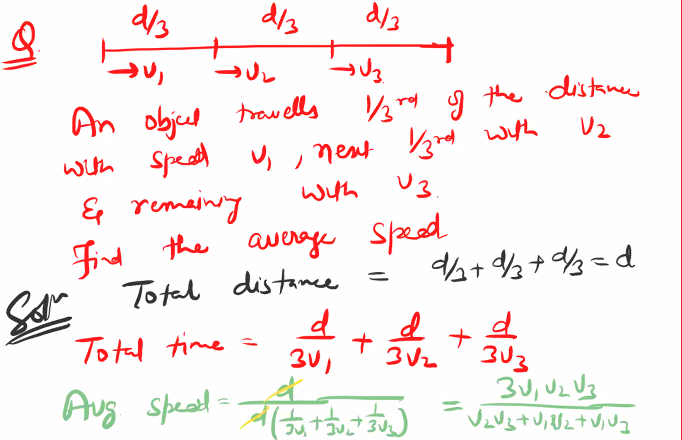 Q.
d/3 d/3 d/3
→ v₁ → v₂ → v₃
An object travells 1/3rd of the distance
with speed v₁, next 1/3rd with v₂
& remaining with v₃.
Find the average speed
Soln Total distance = d/3 + d/3 + d/3 = d
Total time = d/3v₁ + d/3v₂ + d/3v₃
Avg speed = d/d(1/3v₁ + 1/3v₂ + 1/3v₃) = 3v₁v₂v₃/v₂v₃+v₁v₂+v₁v₃